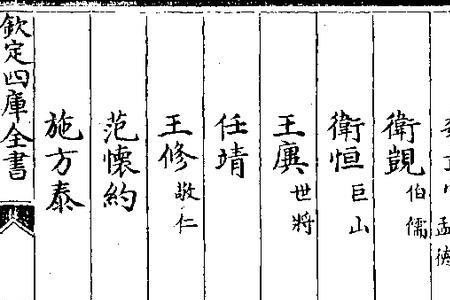 孟德
衛覬 伯儒
衛恒 巨山
王廙 世將
任靖
王修 敬仁
范懷約
施方泰
欽定四庫全書